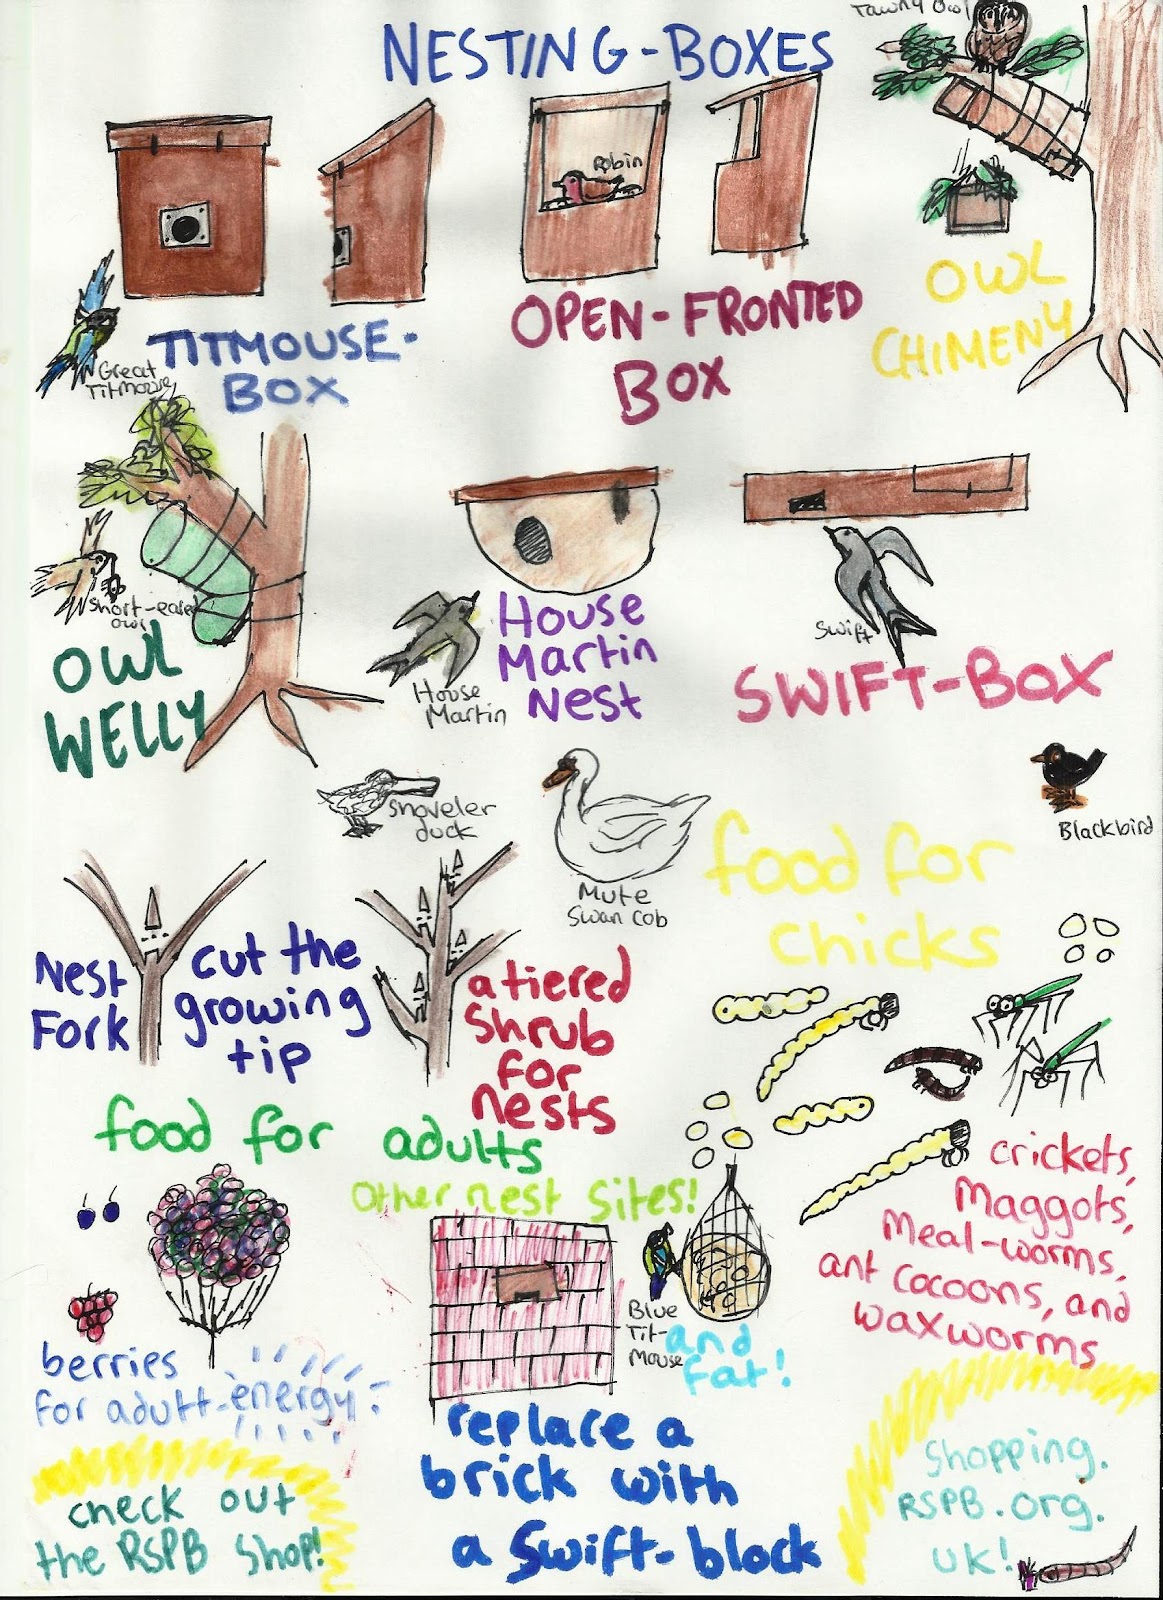 NESTING-BOXES
Tawny Owl
Robin
Great
Titmouse
TITMOUSE-
BOX
OPEN-FRONTED
BOX
OWL
CHIMENY
short-eared
owl
OWL
WELLY
House
Martin
House
Martin
Nest
Swift
SWIFT-BOX
Shoveler
duck
Mute
Swan cob
Blackbird
food for
chicks
Nest
Fork
cut the
growing
tip
a tiered
Shrub
for
nests
food for adults
Other nest sites!
crickets,
Maggots,
Meal-worms,
ant cocoons, and
waxworms
Blue
Tit-
Mouse
and
fat!
berries
for adult-energy
replace a
brick with
a Swift-block
check out
the RSPB shop!
Shopping.
RSPB.org.
uk!